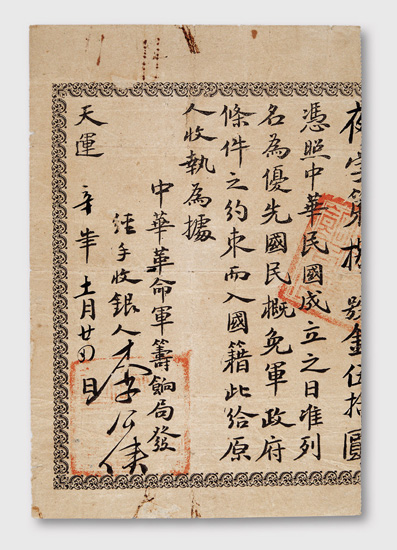 字第拾號金伍拾圓
憑照中華民國成立之日准列
名為優先國民概免軍政府
條件之約束而入國籍此給原
人收執為據
中華革命軍籌餉局發
經手收銀人李公俠
天運 辛年十一月廿四日